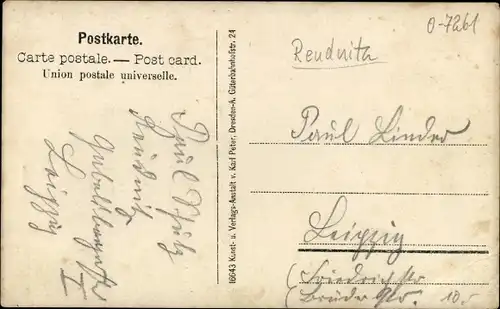 Postkarte.
Carte postale. — Post card.
Union postale universelle.
Paul
Reudnitz
Leipzig
I
16643 Kunst- u. Verlags-Anstalt v. Karl Peter, Dresden-A. Güterbahnhofstr. 24
0-7261
Reudnitz
Paul Linder
Leipzig
(Friedrichstr
(Brüderstr. 10.